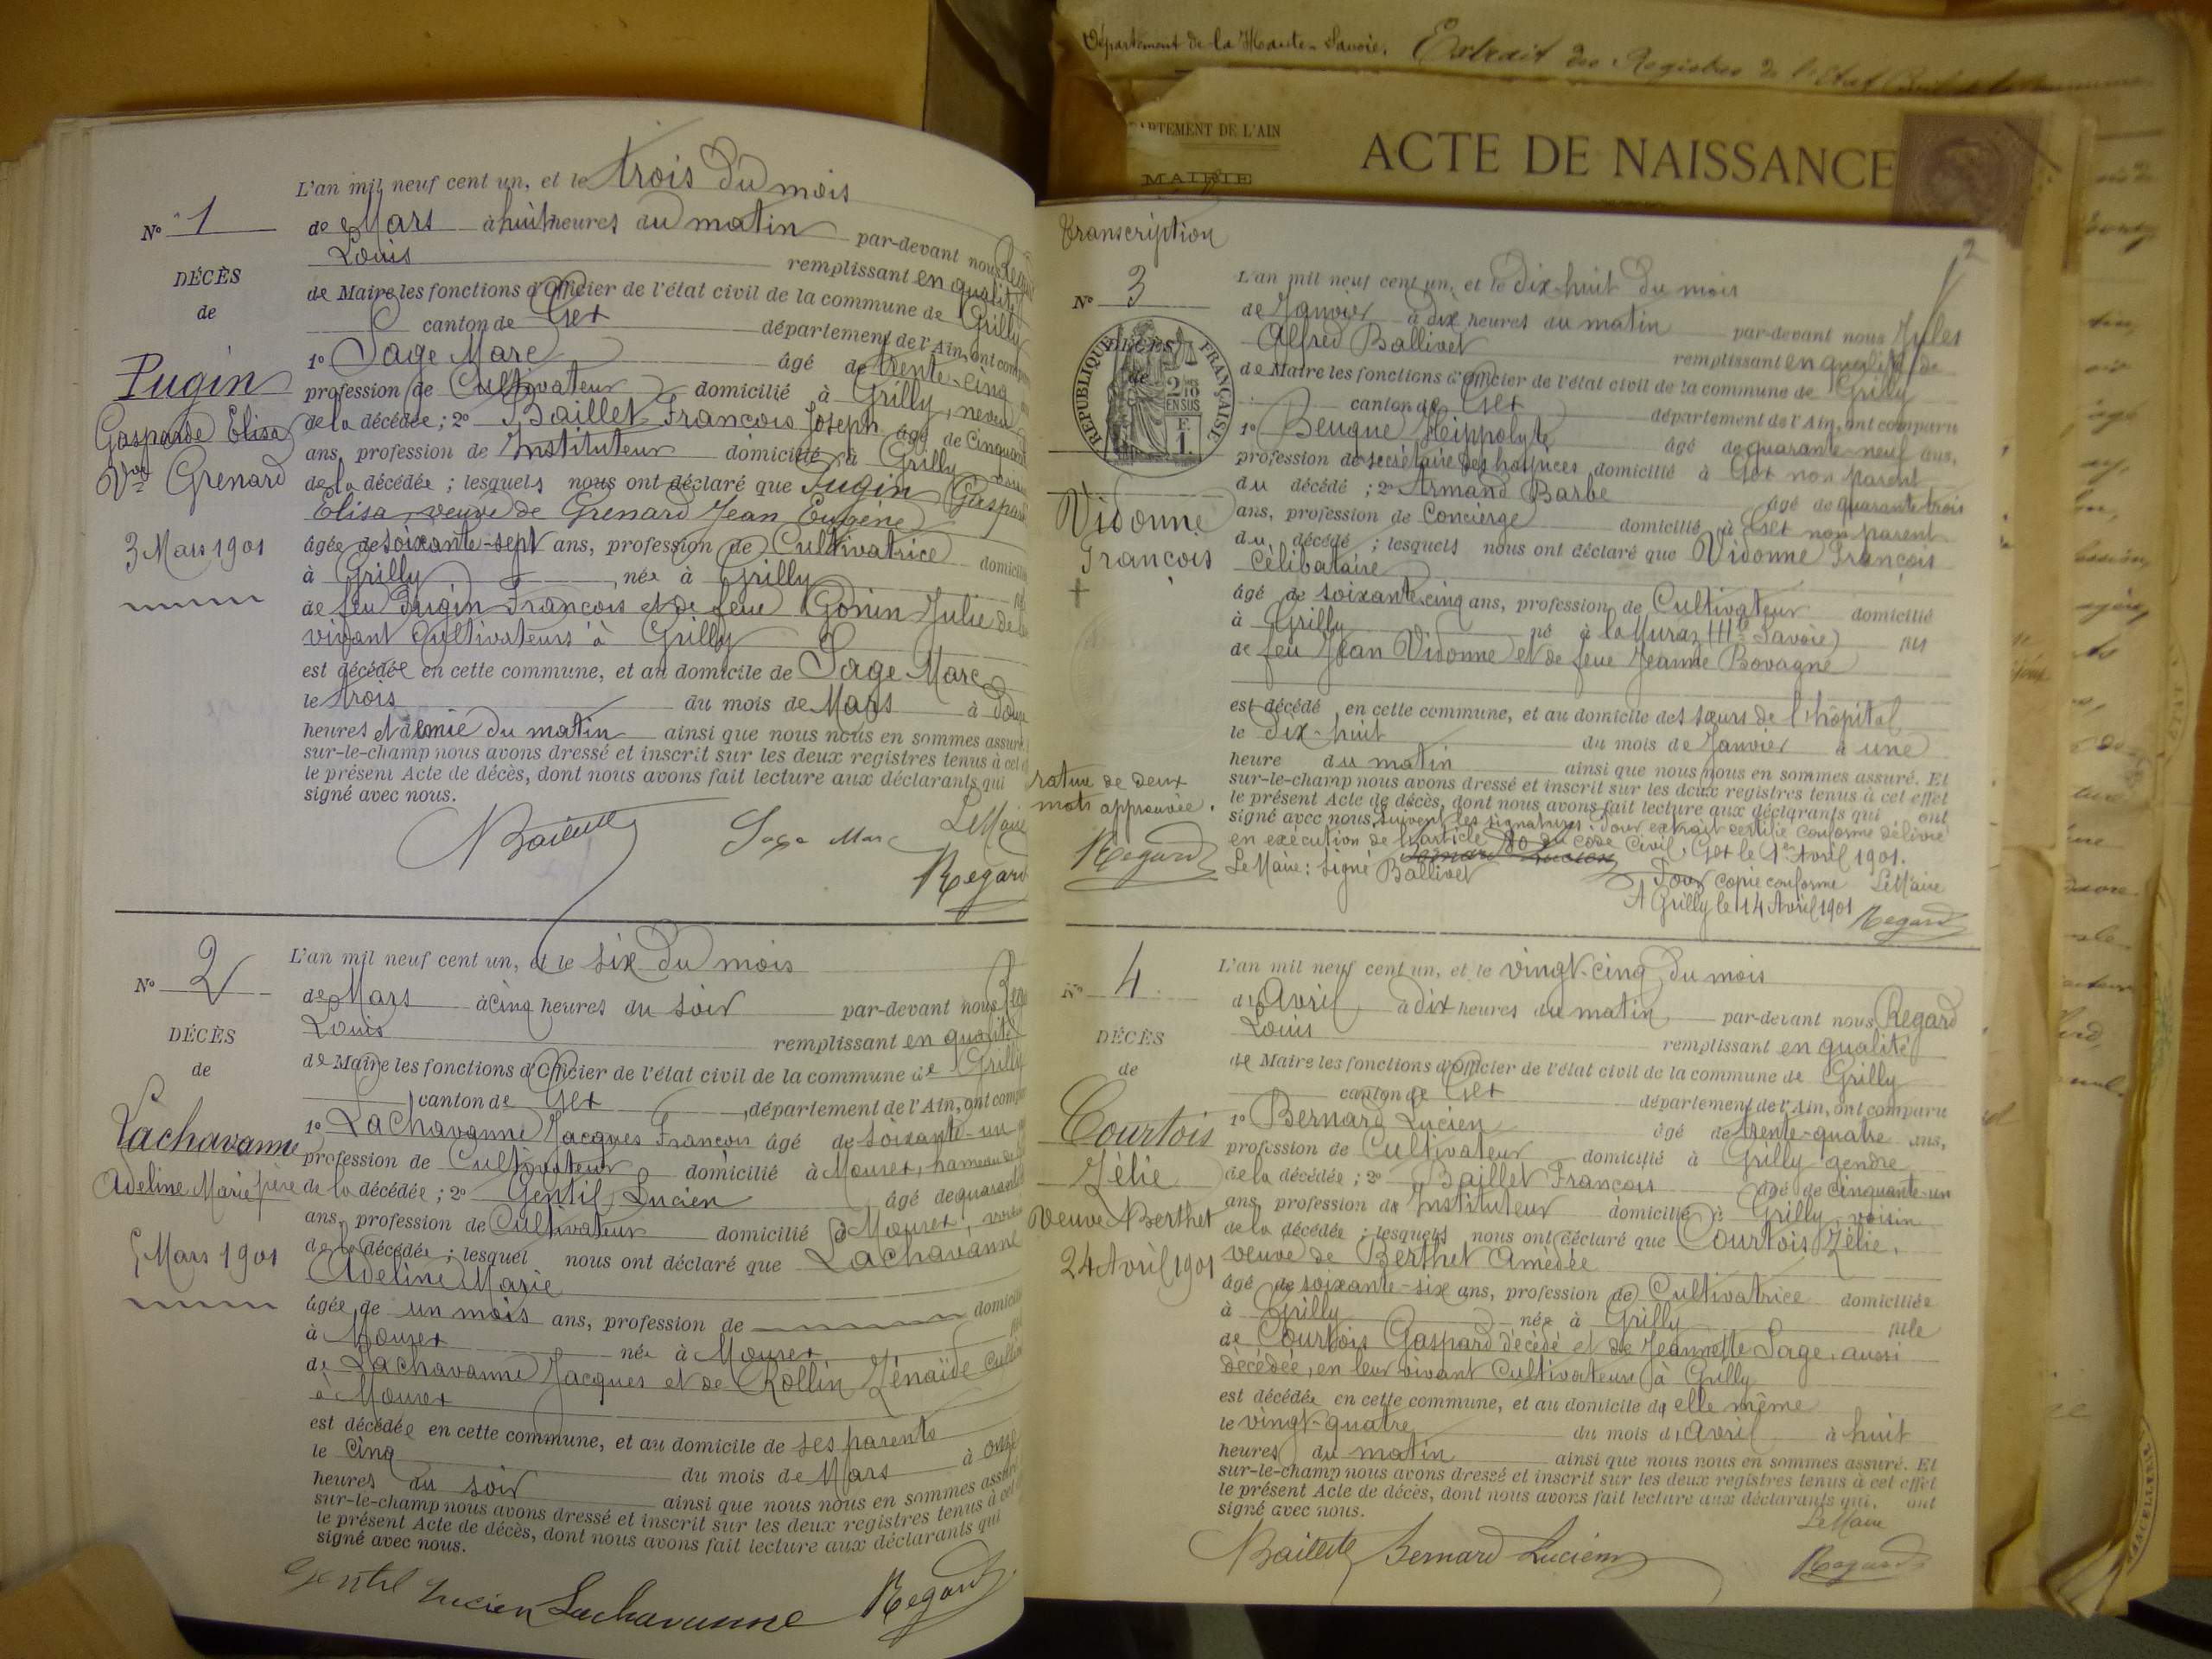 Département de la Haute-Savoie. Extrait des Registres de l'Etat Civil de la
DÉPARTEMENT DE L'AIN
MAIRIE
ACTE DE NAISSANCE
N° 1
DÉCÈS
de
Pugin
Gasparde Elisa
Vve Grenard
3 Mars 1901
L'an mil neuf cent un, et le trois du mois
de Mars à huit heures du matin par-devant nous
Louis remplissant en qualité
de Maire les fonctions d'officier de l'état civil de la commune de Grilly
canton de Gex département de l'Ain, ont comparu
1° Sage Marc âgé de trente-cinq
profession de Cultivateur domicilié à Grilly, neveu
de la décédée ; 2° Baillet François Joseph âgé de Cinquante
ans, profession de Instituteur domicilié à Grilly
de la décédée ; lesquels nous ont déclaré que Pugin Gasparde
Elisa, veuve de Grenard Jean Eugène
âgée de soixante-sept ans, profession de Cultivatrice domiciliée
à Grilly, née à Grilly
de feu Pugin François et de feue Gonin Julie de leur
vivant Cultivateurs à Grilly
est décédée en cette commune, et au domicile de Sage Marc
le trois du mois de Mars à
heures et demie du matin ainsi que nous nous en sommes assuré
sur-le-champ nous avons dressé et inscrit sur les deux registres tenus à cet
le présent Acte de décès, dont nous avons fait lecture aux déclarants qui
signé avec nous.
Le Maire
Baillet Sage Marc
Regard
N° 2
DÉCÈS
de
Lachavanne
Adeline Marie
5 Mars 1901
L'an mil neuf cent un, et le six du mois
de Mars à cinq heures du soir par-devant nous
Louis remplissant en qualité
de Maire les fonctions d'officier de l'état civil de la commune de Grilly
canton de Gex, département de l'Ain, ont comparu
1° Lachavanne Jacques François âgé de soixante-un
profession de Cultivateur domicilié à Mourex, hameau de
père de la décédée ; 2° Gentil Lucien âgé de quarante
ans, profession de Cultivateur domicilié à Mourex, voisin
de la décédée ; lesquel nous ont déclaré que Lachavanne
Adeline Marie
âgée de un mois ans, profession de domiciliée
à Mourex née à Mourex
de Lachavanne Jacques et de Rollin Zénaïde
à Mourex
est décédée en cette commune, et au domicile de ses parents
le Cinq du mois de Mars à onze
heures du soir ainsi que nous nous en sommes assuré
sur-le-champ nous avons dressé et inscrit sur les deux registres tenus à cet
le présent Acte de décès, dont nous avons fait lecture aux déclarants qui
signé avec nous.
Gentil Lucien Lachavanne Regard
2
Transcription
N° 3
DÉCÈS
de
RÉPUBLIQUE FRANÇAISE
2/10
EN SUS
Vidonne
François
rature de deux
mots approuvée.
Regard
L'an mil neuf cent un, et le dix-huit du mois
de Janvier à dix heures du matin par-devant nous Jules
Alfred Ballivet remplissant en qualité de
de Maire les fonctions d'officier de l'état civil de la commune de Grilly
canton de Gex département de l'Ain, ont comparu
1° Beugne Hippolyte âgé de quarante-neuf ans,
profession de secrétaire des hospices domicilié à Gex non parent
du décédé ; 2° Armand Barbe âgé de quarante-trois
ans, profession de Concierge domicilié à Gex non parent
du décédé ; lesquels nous ont déclaré que Vidonne François
Célibataire
âgé de soixante cinq ans, profession de Cultivateur domicilié
à Grilly né à la Muraz (Hte Savoie) fils
de feu Jean Vidonne et de feue Jeanne Bovagne
est décédé en cette commune, et au domicile des sœurs de l'hôpital
le Dix-huit du mois de Janvier à une
heure du matin ainsi que nous nous en sommes assuré. Et
sur-le-champ nous avons dressé et inscrit sur les deux registres tenus à cet effet
le présent Acte de décès, dont nous avons fait lecture aux déclarants qui ont
signé avec nous. suivent les signatures. Pour extrait certifié conforme délivré
en exécution de l'article 80 du Code Civil, Gex le 1er Avril 1901.
Le Maire : signé Ballivet
Pour copie conforme Le Maire
A Grilly le 14 Avril 1901 Regard
N° 4
DÉCÈS
de
Courtois
Zélie
Veuve Berthet
24 Avril 1901
L'an mil neuf cent un, et le vingt-cinq du mois
d'Avril à dix heures du matin par-devant nous Regard
Louis remplissant en qualité
de Maire les fonctions d'officier de l'état civil de la commune de Grilly
canton de Gex département de l'Ain, ont comparu
1° Bernard Lucien âgé de trente-quatre ans,
profession de Cultivateur domicilié à Grilly gendre
de la décédée ; 2° Baillet François âgé de cinquante-un
ans, profession de Instituteur domicilié à Grilly, voisin
de la décédée ; lesquels nous ont déclaré que Courtois Zélie,
veuve de Berthet Amédée
âgé de soixante-six ans, profession de Cultivatrice domiciliée
à Grilly née à Grilly fille
de Courtois Gaspard décédé et de Jeannette Sage, aussi
décédée, en leur vivant Cultivateurs à Grilly
est décédée en cette commune, et au domicile de elle même
le vingt-quatre du mois d'Avril à huit
heures du matin ainsi que nous nous en sommes assuré. Et
sur-le-champ nous avons dressé et inscrit sur les deux registres tenus à cet effet
le présent Acte de décès, dont nous avons fait lecture aux déclarants qui, ont
signé avec nous.
Le Maire
Baillet Bernard Lucien Regard